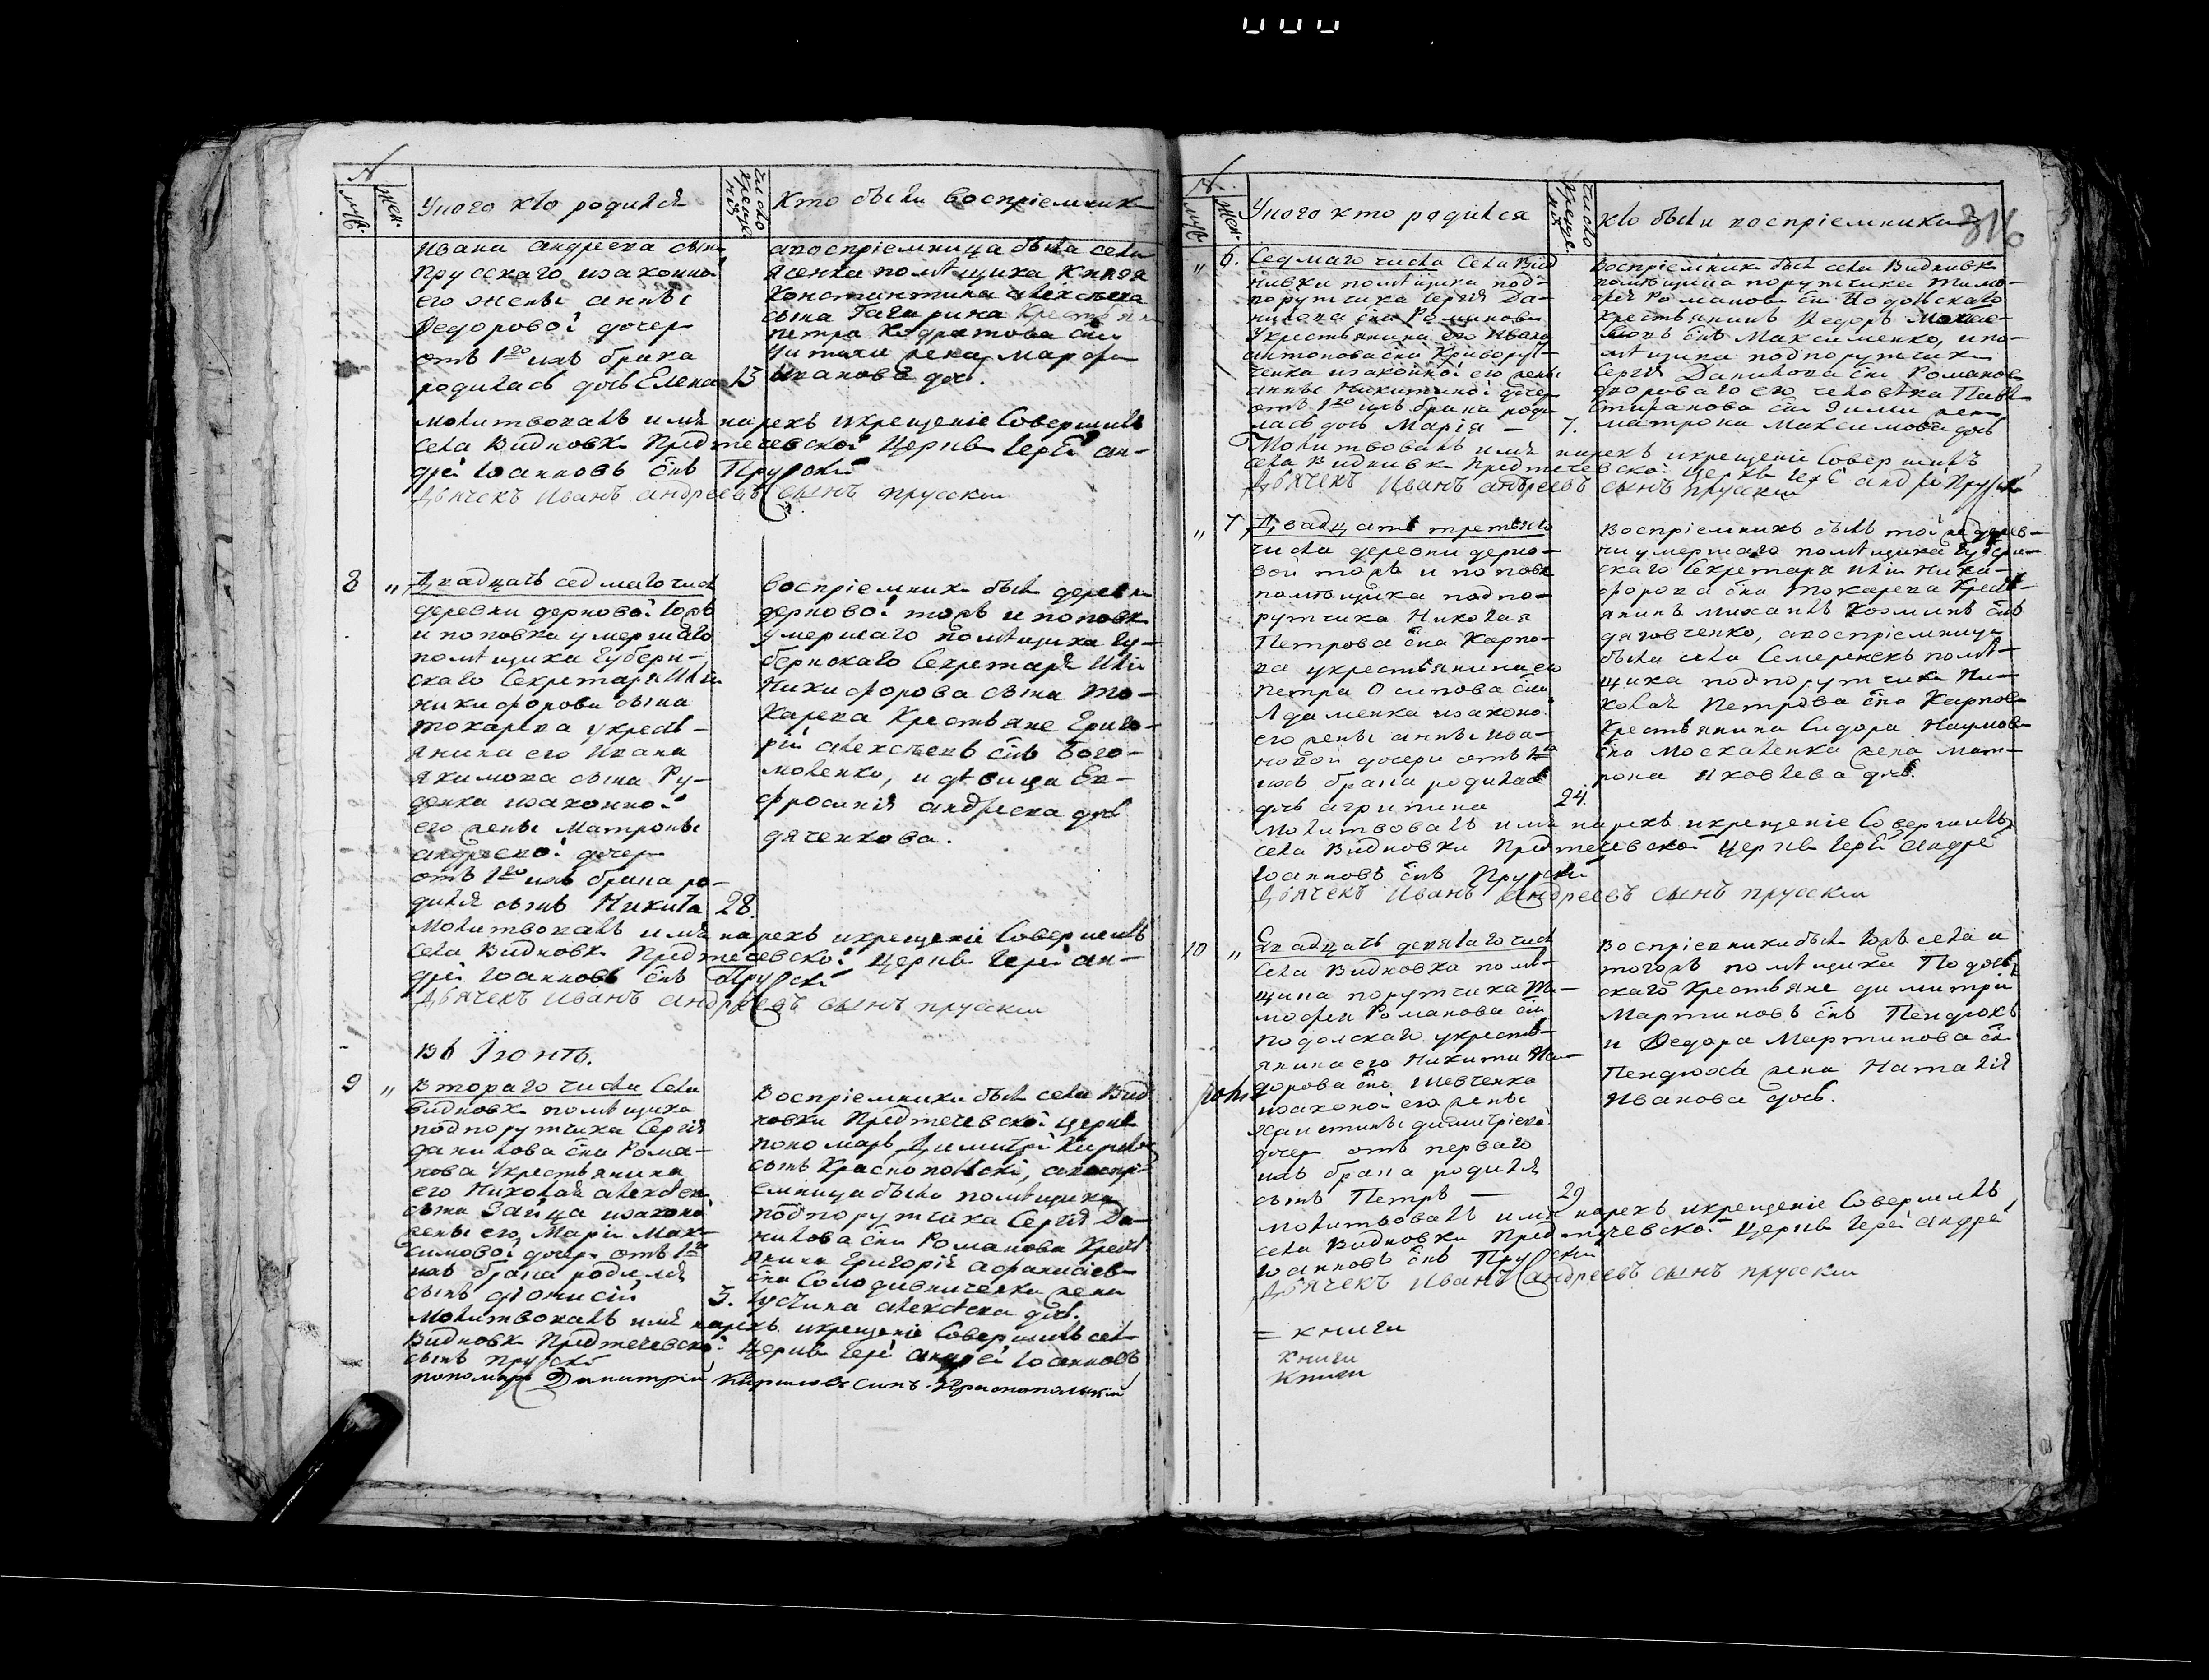 №
муж.
жен.
У кого кто родился
число крещенiя
Кто были восприемники
Ивана Андреева сына
Прусскаго и законной
его жены Анны
Федоровой дочери
отъ 1го ихъ брака
родилась дочь Елена 13
а восприемница была села
Ясенка помѣщика Князя
Константина Алексѣева
сына Гагарина крестьянина
Петра Кодратова сна
жена Марфа
Иванова дочь.
молитвовалъ имя нарекъ и крещение совершилъ
села Видновки Предтечевской церкви Iерей Ан-
дрей Iоанновъ снъ Прускiй
Дьячекъ Иванъ Андреевъ сынъ Прусскiй
8 „
Двадцать седмаго числа
деревни дерновой тожъ
и поповка умершаго
помѣщика губерн-
скаго Секретаря Илiи
Никифорова сына
Токарева у кресть-
янина его Ивана
Якимова сына Ру-
денка и законной
его жены Матроны
Андреевой дочери
отъ 1го ихъ брака ро-
дился сынъ Никита 28.
восприемники были деревни
дерновой тожъ и поповки
умершаго помѣщика гу-
бернскаго Секретаря Илiи
Никифорова сына То-
карева Крестьяне Григо-
рiй Алексѣевъ снъ Бого-
моленко, и дѣвица Ев-
фросинiя Андреева дочь
дяченкова.
Молитвовалъ имя нарекъ и крещенiе совершилъ
села Видновки Предтечевской церкви Iерей Ан-
дрей Iоанновъ снъ Прускiй
Дьячекъ Иванъ Андреевъ сынъ Прусскiй
Въ Iюнѣ.
9 „
Втораго числа села
Видновки помѣщика
подпорутчика Сергiя
Данилова сна Рома-
нова у крестьянина
его Николая Алексѣева
сына Зайца и законной
жены его Марiи Мак-
симовой дочери отъ 1го
ихъ брака родился
сынъ Дiонисiй 3.
Восприемники были села Вид-
новки Предтечевской церкви
пономарь Димитрiй Кирилловъ
сынъ Краснопольскiй, а воспрi-
емница была помѣщика
подпорутчика Сергiя Да-
нилова сна Романова Крест-
янина Григорiя Афанасiева
сна Солодивниченка жена
Iустина Алексѣева дочь.
Молитвовалъ имя нарекъ и крещенiе совершилъ села
Видновки Предтечевской церкви Iерей Андрей Iоанновъ
сынъ Прускiй
пономарь Димитрiй Кириловъ сынъ Краснопольскiй
№
муж.
жен.
У кого кто родился
число крещенiя
Кто были восприемники
316
„ 6.
Седмаго числа села Вид-
нивки помѣщика под-
порутчика Сергiя Да-
нилова сна Романова
у крестьянина его Ивана
Антонова сна Криворут-
ченка и законной его жены
Анны Никитиной дочери
отъ 1го ихъ брака роди-
лась дочь Марiя — 7.
восприемники были села Видновки
помѣщика порутчика Тимо-
фея Романова сна Подольскаго
крестьянинъ Федоръ
снъ Максименко, и по-
мѣщика подпорутчика
Сергiя Данилова сна Романова
двороваго его человѣка Павла
Стефанова сна жена
Матрона Максимова дочь
Молитвовалъ имя нарекъ и крещенiе совершилъ
села Видновки Предтечевской церкви Iерей Андрей Прускiй
Дьячекъ Иванъ Андреевъ сынъ Прусскiй
„ 7
Двадцать третьяго
числа деревни дерно-
вой тожъ и поповки
помѣщика подпо-
рутчика Николая
Петрова сна Карпо-
ва у крестьянина его
Петра Осипова сна
Адаменка и законной
его жены Анны Ива-
новой дочери отъ 1го
ихъ брака родилась
дочь Агрипина 24.
Восприемникъ былъ той же дерев-
ни умершаго помѣщика губерн-
скаго Секретаря Илiи Ники-
форова сна Токарева Кресть-
янинъ Михаилъ Козминъ снъ
дяговченко, а восприемница
была села Семеренекъ помѣ-
щика подпорутчика Ни-
колая Петрова сна Карпова
Крестьянина Сидора Наумова
сна Москаленка жена Мат-
рона Яковлева дочь.
Молитвовалъ имя нарекъ и крещенiе совершилъ
села Видновки Предтечевской церкви Iерей Андрей
Iоанновъ снъ Прускiй
Дьячекъ Иванъ Андреевъ сынъ Прусскiй
10 „
Двадцать девятаго числа
села Видновка помѣ-
щика порутчика Ти-
мофея Романова сна
Подолскаго у кресть-
янина его Никиты
сна Шевченка
и законой его жены
Христины Димитрiевой
дочери отъ перваго
ихъ брака родился
сынъ Петръ — 29
Восприемники были тогожъ села и
тогожъ помѣщика Подоль-
скаго Крестьяне Димитрiй
Мартиновъ снъ Пендюхъ
и Федора Мартинова сна
Пендюха жена Наталiя
Иванова дочь.
молитвовалъ имя нарекъ и крещенiе совершилъ
села Видновки Предтечевской церкви Iерей Андрей
Iоанновъ снъ Прускiй
Дьячекъ Иванъ Андреевъ сынъ Прусскiй
= книги
книги
книги